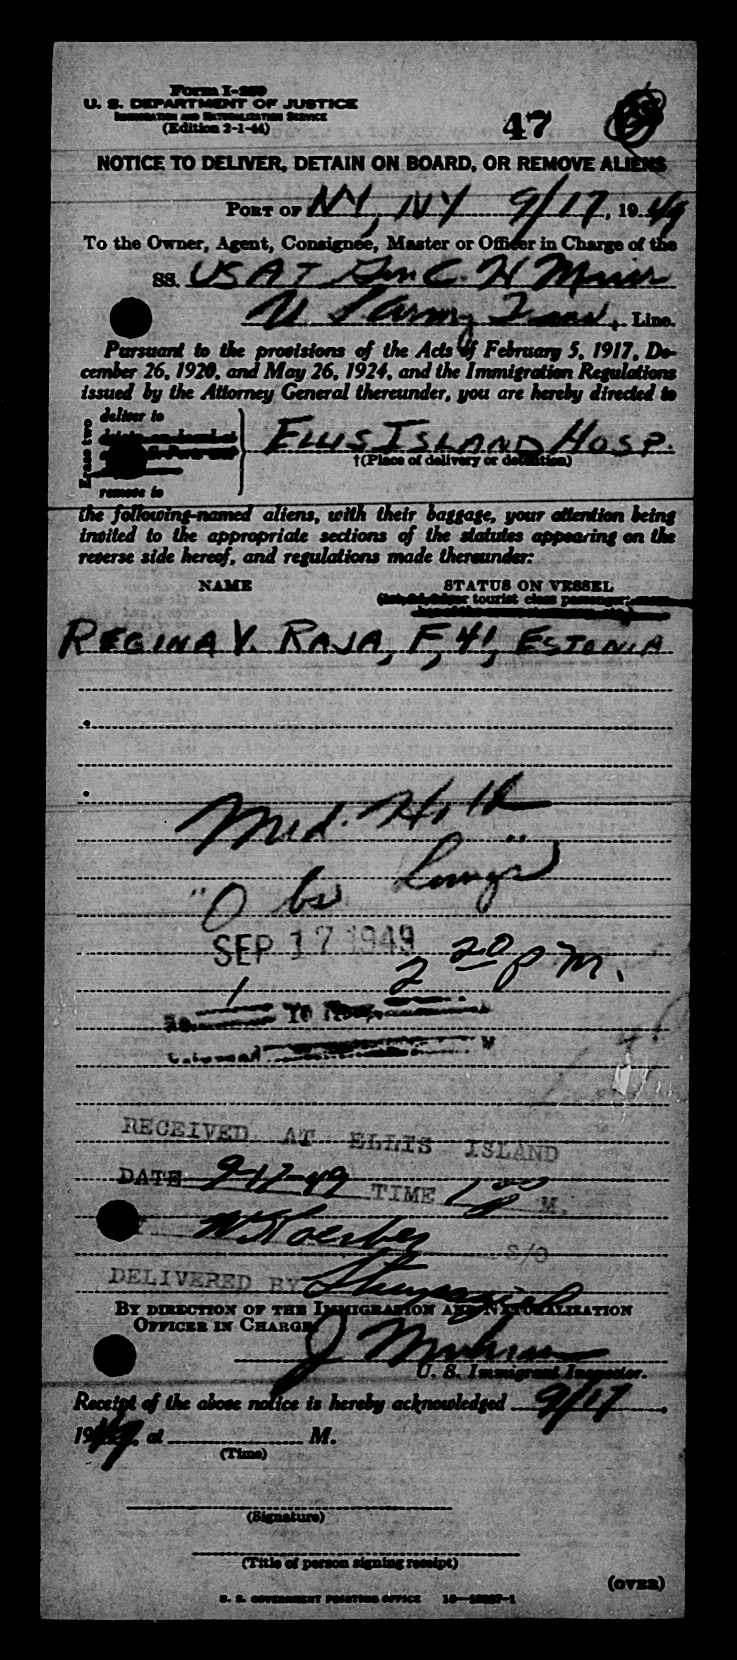 Form I-259
U. S. DEPARTMENT OF JUSTICE
IMMIGRATION AND NATURALIZATION SERVICE
(Edition 2-1-44)
47
NOTICE TO DELIVER, DETAIN ON BOARD, OR REMOVE ALIENS
PORT OF NY, NY 9/17, 1949
To the Owner, Agent, Consignee, Master or Officer in Charge of the
SS. USAT Gen C. H Muir
U S Army Trans. Line.
Pursuant to the provisions of the Acts of February 5, 1917, De-
cember 26, 1920, and May 26, 1924, and the Immigration Regulations
issued by the Attorney General thereunder, you are hereby directed to
Erase two
deliver to
remove to
ELLIS ISLAND HOSP.
†(Place of delivery or detention)
the following-named aliens, with their baggage, your attention being
invited to the appropriate sections of the statutes appearing on the
reverse side hereof, and regulations made thereunder:
NAME STATUS ON VESSEL
tourist class passenger
REGINA V. RAJA, F, 41, ESTONIA
Med. Hold
"Obs Lungs"
SEP 17 1949
2 20 P M.
RECEIVED AT ELLIS ISLAND
DATE 9-17-49 TIME 1 00 P M.
S/O
DELIVERED BY
BY DIRECTION OF THE IMMIGRATION AND NATURALIZATION
OFFICER IN CHARGE
U. S. Immigrant Inspector.
Receipt of the above notice is hereby acknowledged 9/17,
1949, at M.
(Time)
(Signature)
(Title of person signing receipt)
(OVER)
U. S. GOVERNMENT PRINTING OFFICE